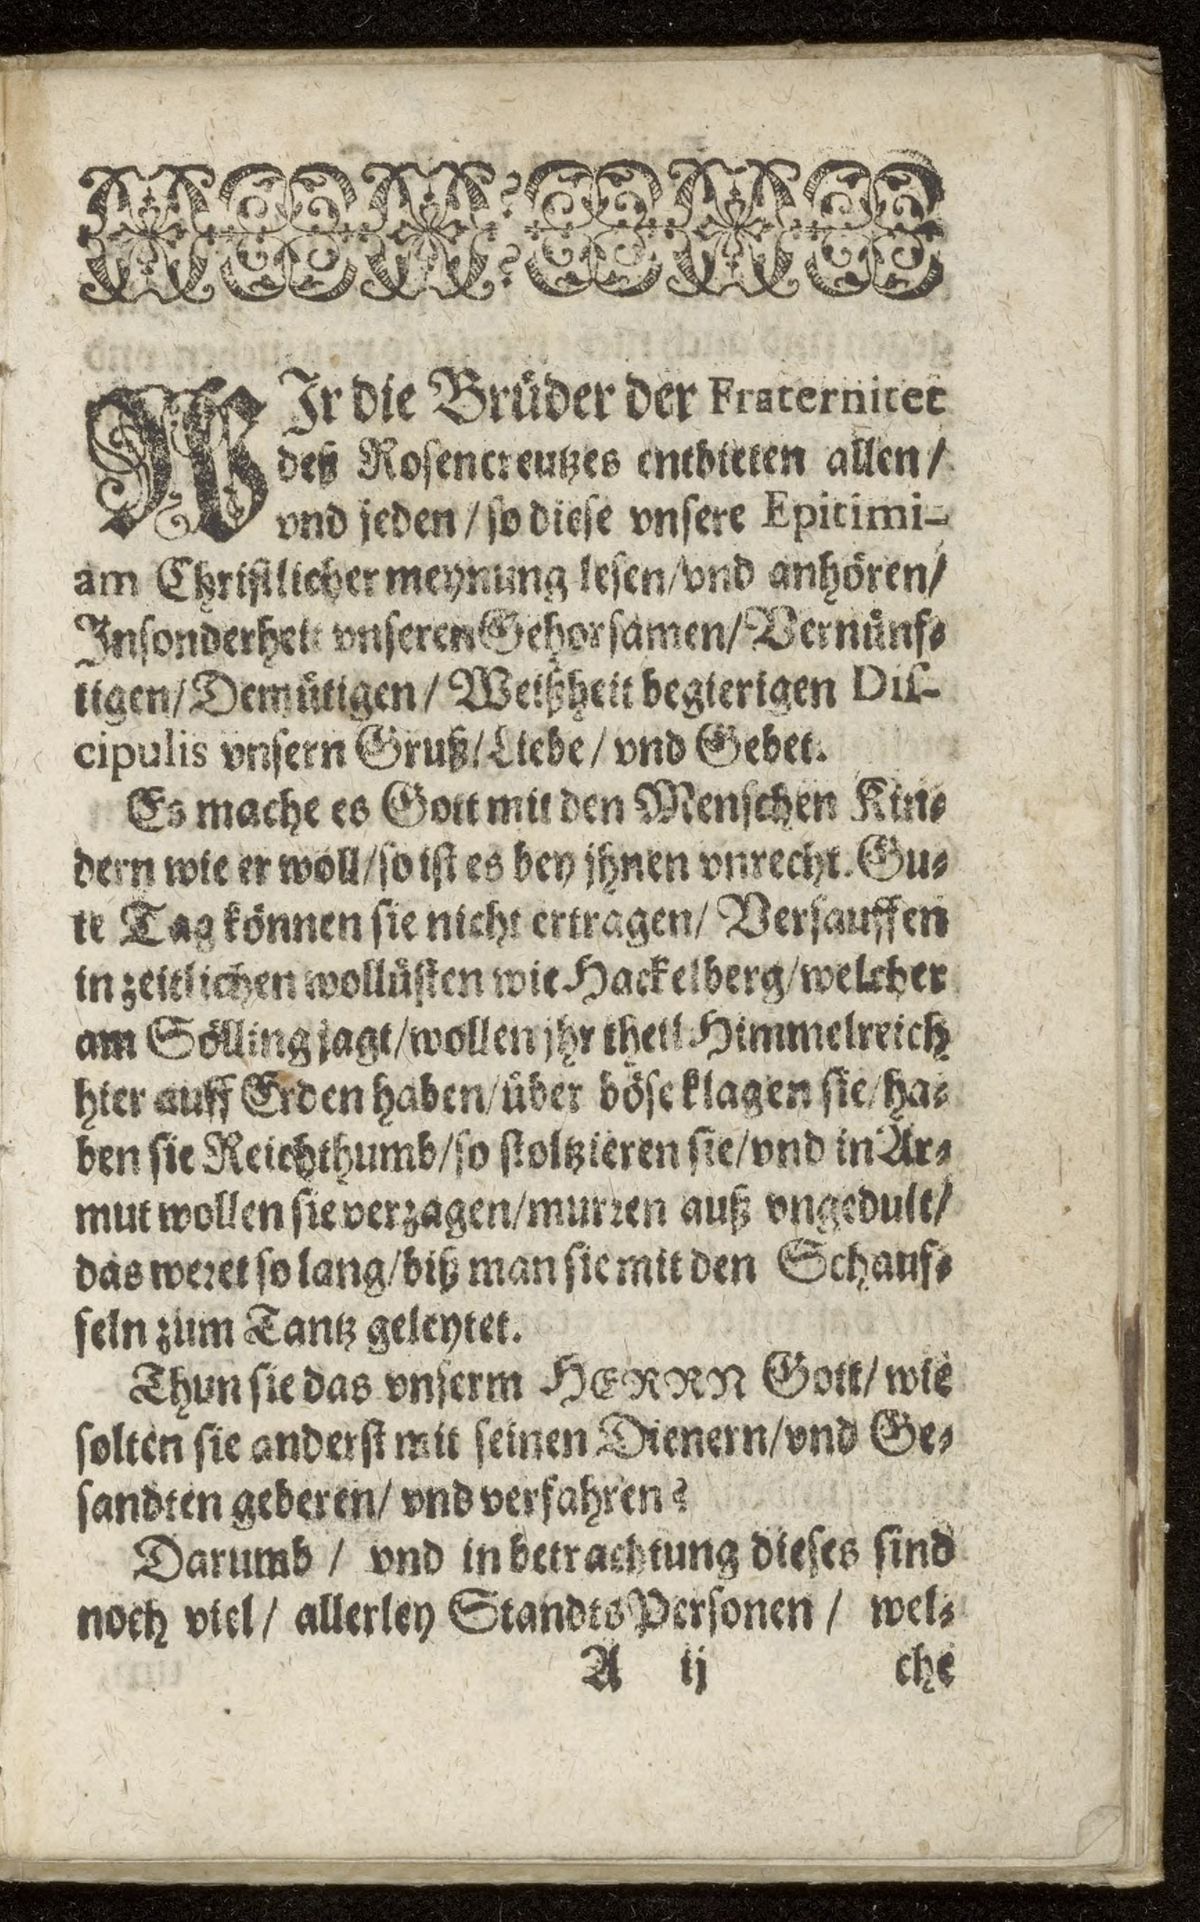 WIr die Brüder der Fraternitet
deß Rosencreutzes entbieten allen/
vnd jeden/ so diese vnsere Epitimi-
am Christlicher meynung lesen/vnd anhören/
Insonderheit vnseren Gehorsamen/ Vernünf-
tigen/ Demütigen/ Weißheit begierigen Dis-
cipulis vnsern Gruß/ Liebe/ vnd Gebet.
Es mache es Gott mit den Menschen Kin-
dern wie er woll/so ist es bey jhnen vnrecht. Gu-
te Tag können sie nicht ertragen/ Versauffen
in zeitlichen wollüsten wie Hackelberg/welcher
am Sölling jagt/wollen jhr theil Himmelreich
hier auff Erden haben/über böse klagen sie/ha-
ben sie Reichthumb/so stoltzieren sie/vnd in Ar-
mut wollen sie verzagen/murren auß vngedult/
das weret so lang/biß man sie mit den Schauf-
feln zum Tantz geleytet.
Thun sie das vnserm HERRN Gott/ wie
solten sie anderst mit seinen Dienern/vnd Ge-
sandten geberen/ vnd verfahren?
Darumb / vnd in betrachtung dieses sind
noch viel/ allerley StandtsPersonen / wel-
A ij che